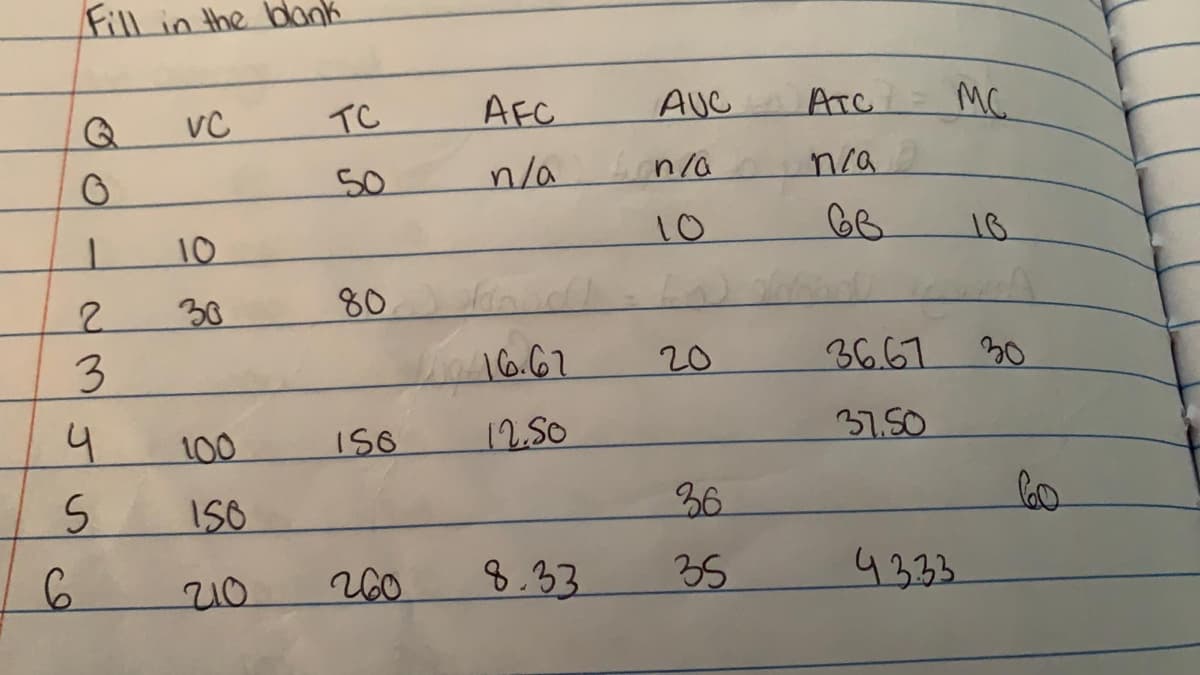 Fill in the blank
Q VC TC AFC AVC ATC MC
0 50 n/a n/a n/a
1 10 10 60 10
2 30 80
3 16.67 20 36.67 30
4 100 150 12.50 37.50
5 150 30 60
6 210 260 8.33 35 43.33